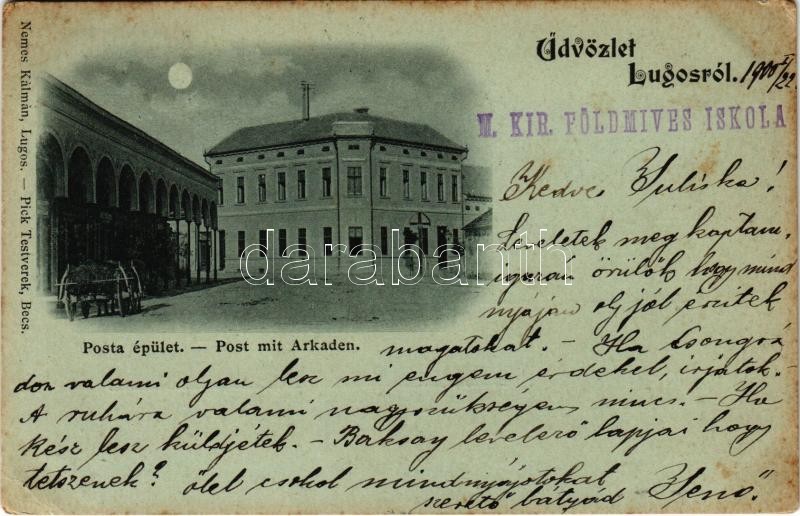 Üdvözlet
Lugosról. 1900 V/22
M. KIR. FÖLDMIVES ISKOLA
Nemes Kálmán, Lugos. — Pick Testverek, Becs.
Kedves Juliska!
Leveletek meg kaptam,
igazán örülök hogy mind
nyáján oly jól érzitek
magatokat. - Ha Csongrá
don valami olyan lesz mi engem érdekel, irjátok. -
A ruhára valami nagyszükségem nincs. - Ha
kész lesz küldjétek. - Baksay levelező lapjai hogy
tetszenek? ölel csokol mindnyájotokat
szerető bátyád Jenő."
Posta épület. — Post mit Arkaden.
darabanth